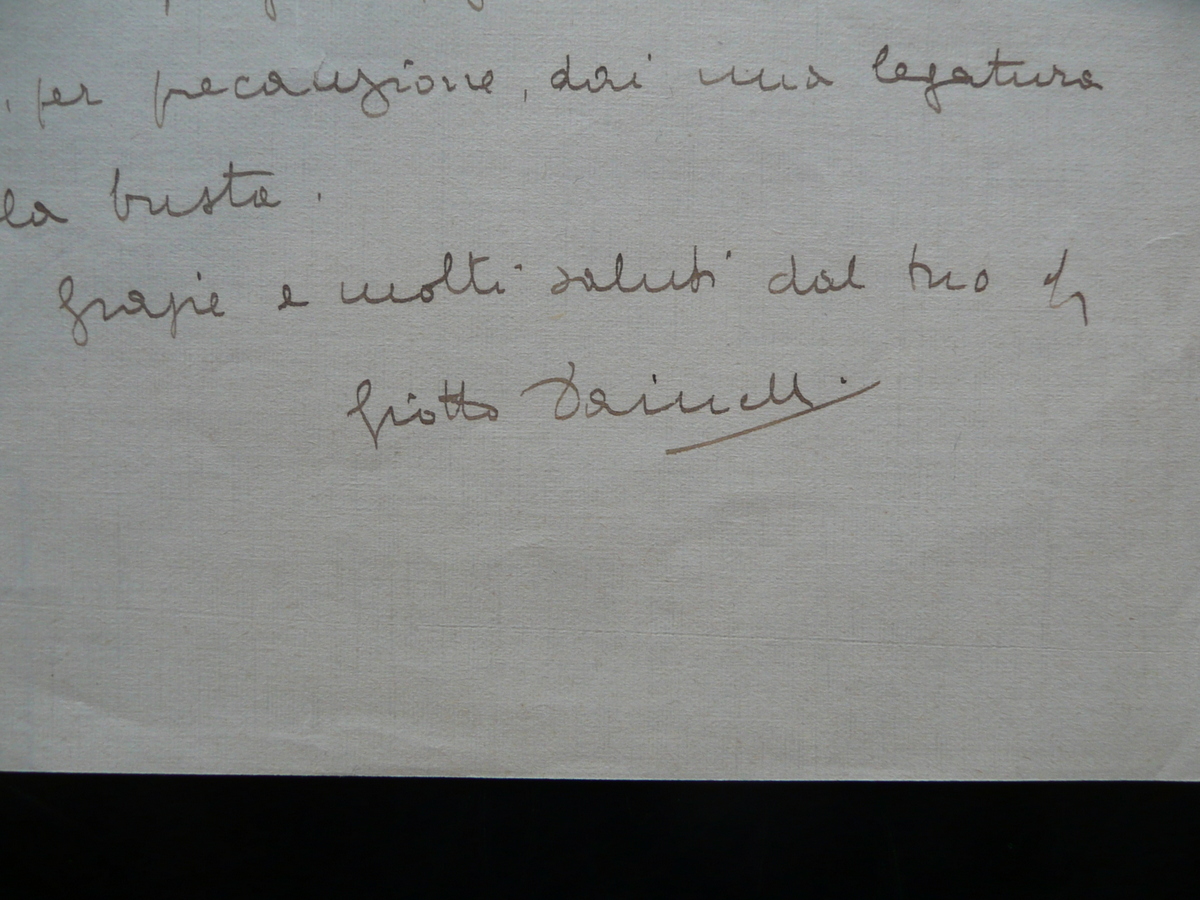 , per precauzione, dai una legatura
la busta.
Grazie e molti saluti dal tuo
Giotto Dainelli